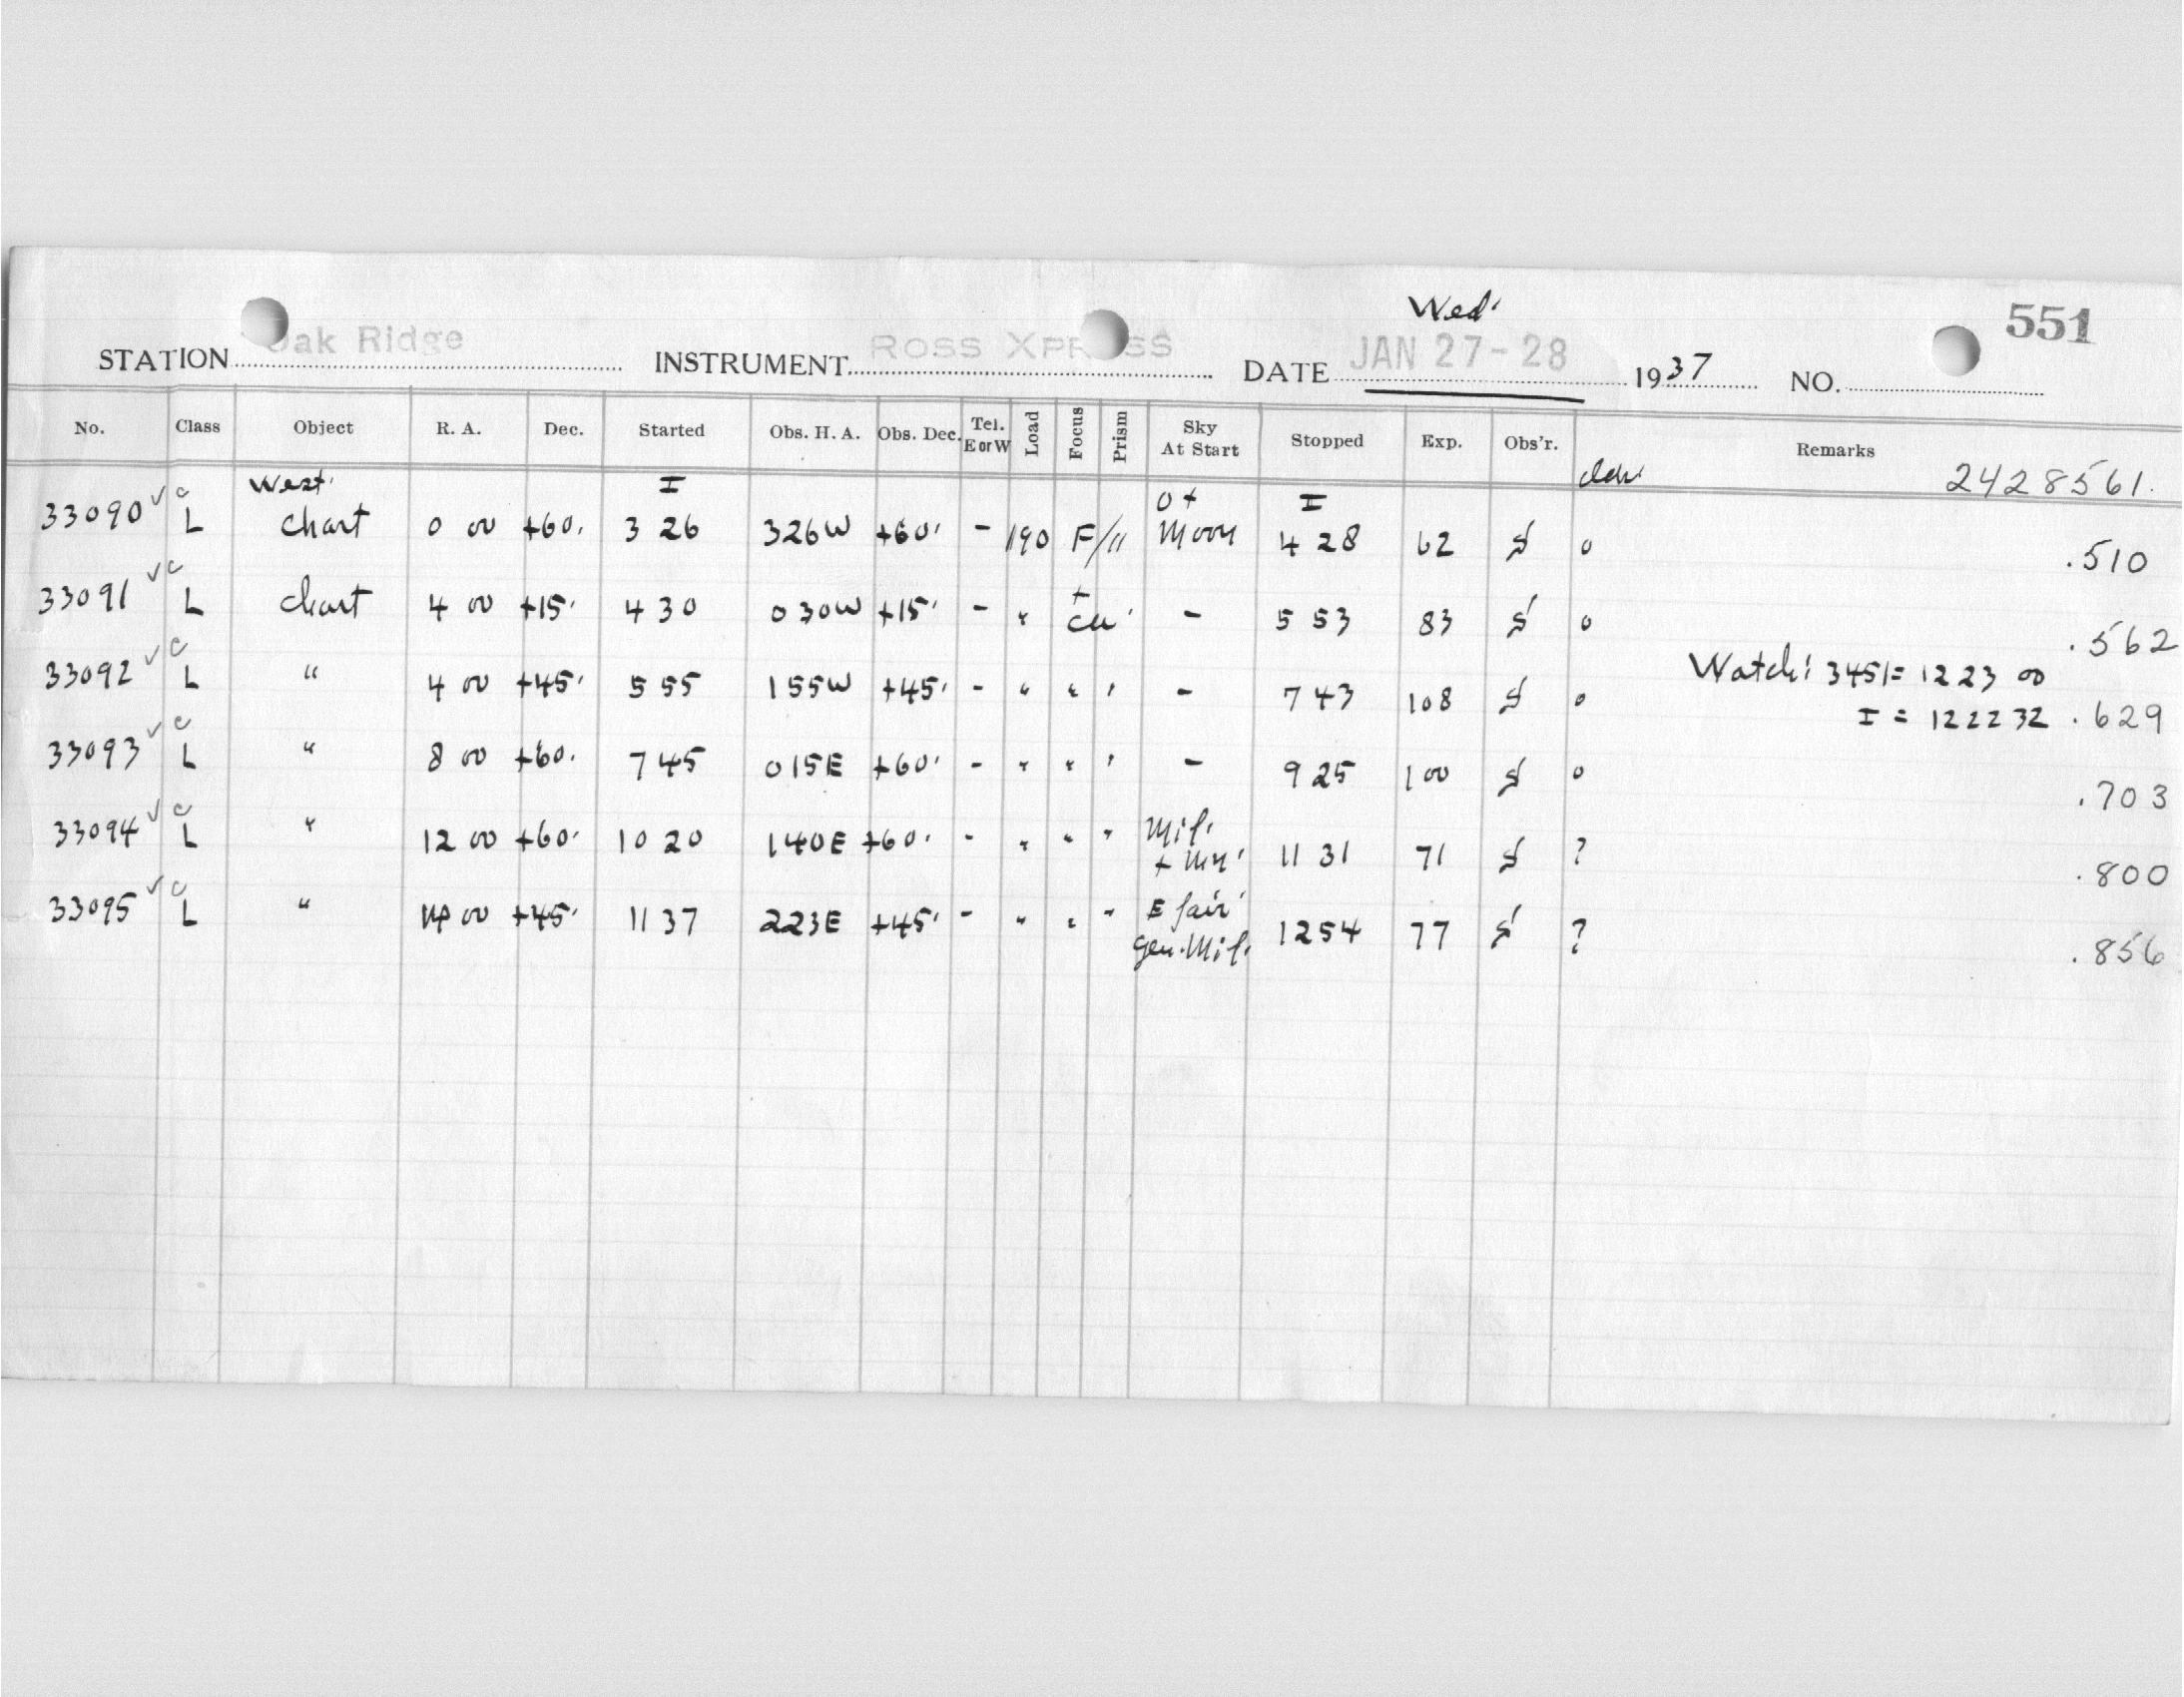 Wed.
551
STATION Oak Ridge INSTRUMENT ROSS XPRESS DATE JAN 27-28 1937 NO.
No. Class Object R. A. Dec. Started Obs. H. A. Obs. Dec. Tel. E or W Load Focus Prism Sky At Start Stopped Exp. Obs'r. Remarks
West. I 0 + I 2428561.
33090 ✓ c L Chart 0 00 +60. 3 26 326W +60. - 190 F/11 Moon 4 28 62 o .510
33091 ✓ c L Chart 4 00 +15. 4 30 030W +15. - " + - 5 53 83 o .562
33092 ✓ c L " 4 00 +45. 5 55 155W +45. - " " " - 7 43 108 o Watch: 3451= 12 23 00
I = 12 22 32 .629
33093 ✓ c L " 8 00 +60. 7 45 015E +60. - " " " - 9 25 100 o .703
33094 ✓ c L " 12 00 +60. 10 20 140E +60. - " " " Mil. + 11 31 71 ? .800
33095 ✓ c L " 14 00 +45. 11 37 223E +45. - " " " E fair. Gen. Mil. 12 54 77 ? .856